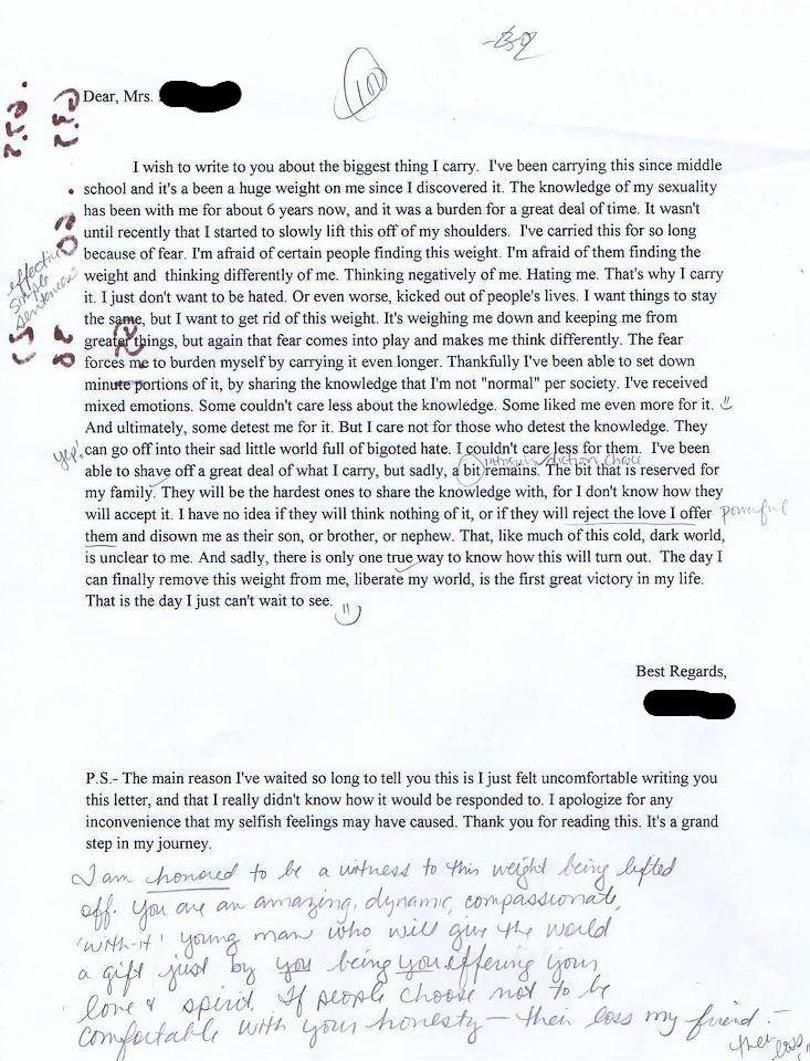 100
Dear, Mrs.
I wish to write to you about the biggest thing I carry. I've been carrying this since middle
school and it's a been a huge weight on me since I discovered it. The knowledge of my sexuality
has been with me for about 6 years now, and it was a burden for a great deal of time. It wasn't
until recently that I started to slowly lift this off of my shoulders. I've carried this for so long
because of fear. I'm afraid of certain people finding this weight. I'm afraid of them finding the
weight and thinking differently of me. Thinking negatively of me. Hating me. That's why I carry
it. I just don't want to be hated. Or even worse, kicked out of people's lives. I want things to stay
the same, but I want to get rid of this weight. It's weighing me down and keeping me from
greater things, but again that fear comes into play and makes me think differently. The fear
forces me to burden myself by carrying it even longer. Thankfully I've been able to set down
minute portions of it, by sharing the knowledge that I'm not "normal" per society. I've received
mixed emotions. Some couldn't care less about the knowledge. Some liked me even more for it.
And ultimately, some detest me for it. But I care not for those who detest the knowledge. They
can go off into their sad little world full of bigoted hate. I couldn't care less for them. I've been
able to shave off a great deal of what I carry, but sadly, a bit remains. The bit that is reserved for
my family. They will be the hardest ones to share the knowledge with, for I don't know how they
will accept it. I have no idea if they will think nothing of it, or if they will reject the love I offer
them and disown me as their son, or brother, or nephew. That, like much of this cold, dark world,
is unclear to me. And sadly, there is only one true way to know how this will turn out. The day I
can finally remove this weight from me, liberate my world, is the first great victory in my life.
That is the day I just can't wait to see.
effective
simple
sentences
yep!
diction choice
powerful
Best Regards,
P.S.- The main reason I've waited so long to tell you this is I just felt uncomfortable writing you
this letter, and that I really didn't know how it would be responded to. I apologize for any
inconvenience that my selfish feelings may have caused. Thank you for reading this. It's a grand
step in my journey.
I am honored to be a witness to this weight being lifted
off. You are an amazing, dynamic, compassionate,
'with-it' young man who will give the world
a gift just by you being you & offering your
love & spirit. If people choose not to be
comfortable with your honesty – their loss my friend. –
their loss